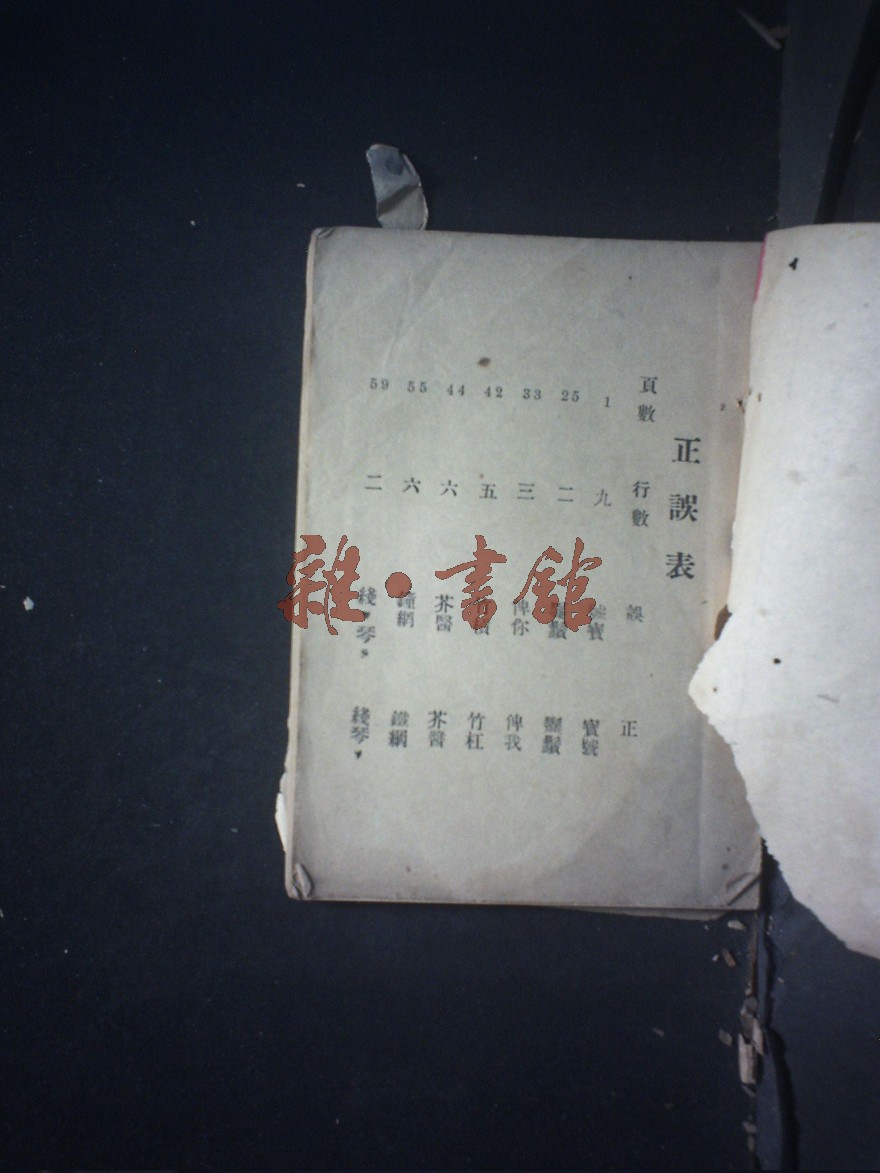 正誤表
頁數 行數 誤 正
1 九 寶 寶號
25 二 鬚
33 三 俾你 俾我
42 五 竹杠
44 六 芥醫 芥醬
55 六 鐘網 鐵網
59 二 綫，琴， 綫琴，
雜·書館